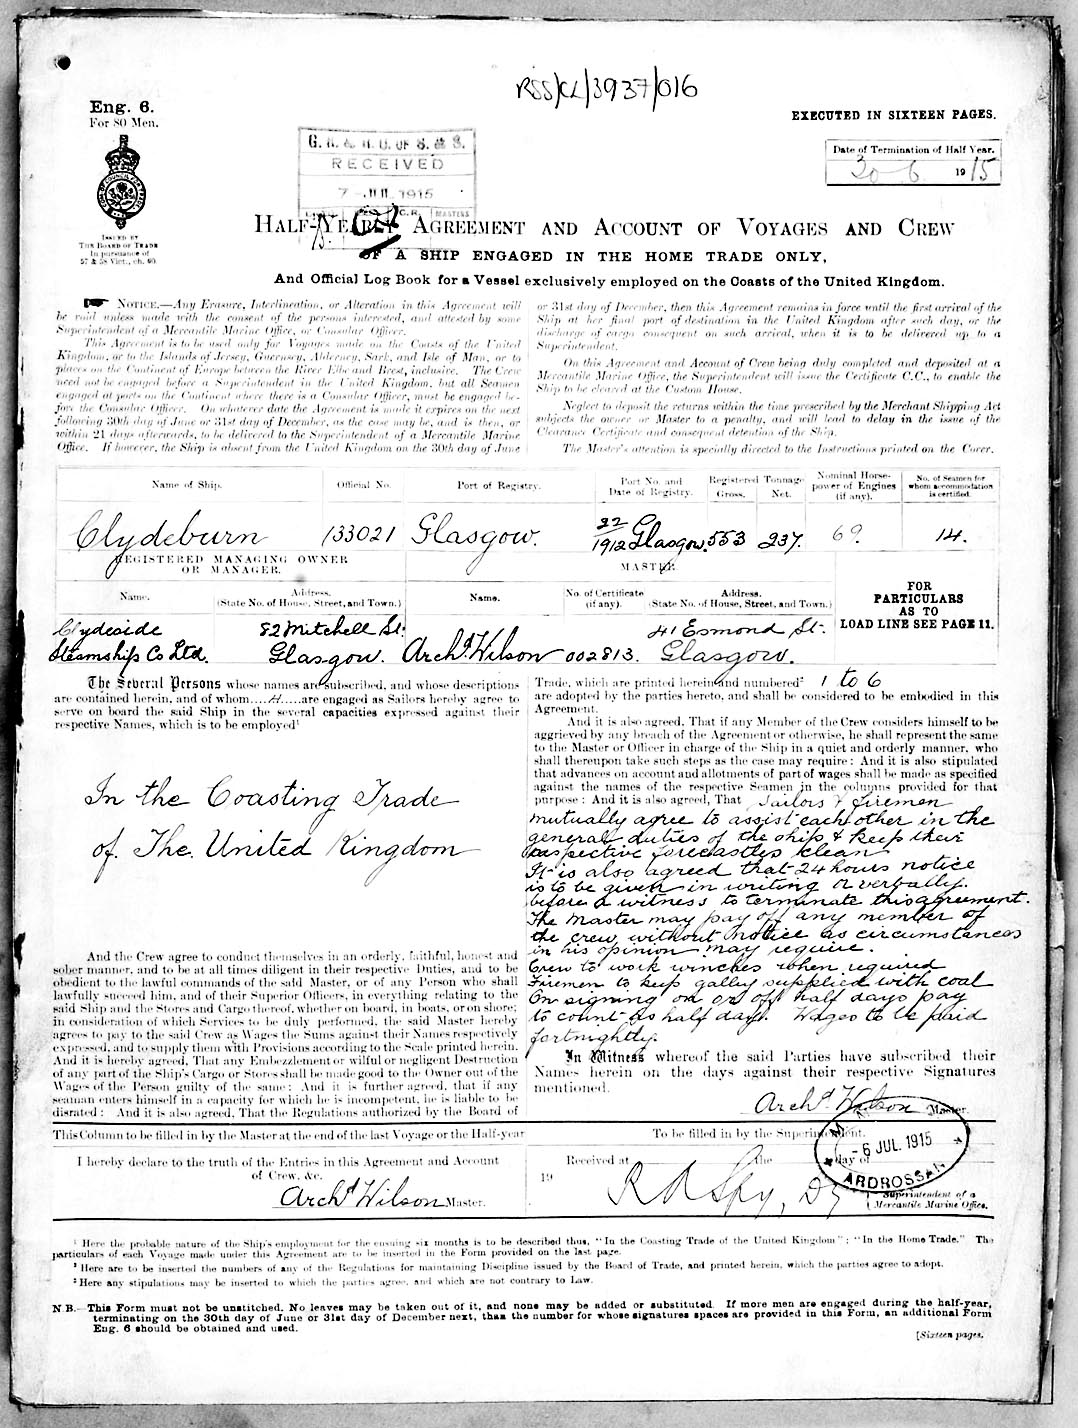 RSS/CL/3937/016
Eng. 6.
For 80 Men.
EXECUTED IN SIXTEEN PAGES.
RECEIVED
7 - JUL 1915
Date of Termination of Half Year.
30 - 6 1915
ISSUED BY
THE BOARD OF TRADE
In pursuance of
57 & 58 Vict., ch. 60.
HALF-YEARLY AGREEMENT AND ACCOUNT OF VOYAGES AND CREW
OF A SHIP ENGAGED IN THE HOME TRADE ONLY,
And Official Log Book for a Vessel exclusively employed on the Coasts of the United Kingdom.
NOTICE.—Any Erasure, Interlineation, or Alteration in this Agreement will
be void unless made with the consent of the persons interested, and attested by some
Superintendent of a Mercantile Marine Office, or Consular Officer.
This Agreement is to be used only for Voyages made on the Coasts of the United
Kingdom, or to the Islands of Jersey, Guernsey, Alderney, Sark, and Isle of Man, or to
places on the Continent of Europe between the River Elbe and Brest, inclusive. The Crew
need not be engaged before a Superintendent in the United Kingdom, but all Seamen
engaged at ports on the Continent where there is a Consular Officer, must be engaged be-
fore the Consular Officer. On whatever date the Agreement is made it expires on the next
following 30th day of June or 31st day of December, as the case may be, and is then, or
within 21 days afterwards, to be delivered to the Superintendent of a Mercantile Marine
Office. If however, the Ship is absent from the United Kingdom on the 30th day of June
or 31st day of December, then this Agreement remains in force until the first arrival of the
Ship at her final port of destination in the United Kingdom after such day, or the
discharge of cargo consequent on such arrival, when it is to be delivered up to a
Superintendent.
On this Agreement and Account of Crew being duly completed and deposited at a
Mercantile Marine Office, the Superintendent will issue the Certificate C.C., to enable the
Ship to be cleared at the Custom House.
Neglect to deposit the returns within the time prescribed by the Merchant Shipping Act
subjects the owner or Master to a penalty, and will lead to delay in the issue of the
Clearance Certificate and consequent detention of the Ship.
The Master's attention is specially directed to the Instructions printed on the Cover.
Name of Ship. Official No. Port of Registry. Port No. and Date of Registry. Registered Tonnage Gross. Net. Nominal Horse-power of Engines (if any). No. of Seamen for whom accommodation is certified.
Clydeburn 133021 Glasgow. 22/1912 Glasgow. 553 237. 69. 14.
REGISTERED MANAGING OWNER
OR MANAGER.
MASTER
Name. Address. (State No. of House, Street, and Town.) Name. No. of Certificate (if any). Address. (State No. of House, Street, and Town.)
FOR
PARTICULARS
AS TO
LOAD LINE SEE PAGE 11.
Clydeside 82 Mitchell St. 41 Esmond St.
Steamships Co Ltd. Glasgow. Archd. Wilson 002813. Glasgow.
The Several Persons whose names are subscribed, and whose descriptions
are contained herein, and of whom....4....are engaged as Sailors hereby agree to
serve on board the said Ship in the several capacities expressed against their
respective Names, which is to be employed¹
In the Coasting Trade
of The United Kingdom
And the Crew agree to conduct themselves in an orderly, faithful, honest and
sober manner, and to be at all times diligent in their respective Duties, and to be
obedient to the lawful commands of the said Master, or of any Person who shall
lawfully succeed him, and of their Superior Officers, in everything relating to the
said Ship and the Stores and Cargo thereof, whether on board, in boats, or on shore;
in consideration of which Services to be duly performed, the said Master hereby
agrees to pay to the said Crew as Wages the Sums against their Names respectively
expressed, and to supply them with Provisions according to the Scale printed herein.
And it is hereby agreed, That any Embezzlement or wilful or negligent Destruction
of any part of the Ship's Cargo or Stores shall be made good to the Owner out of the
Wages of the Person guilty of the same: And it is further agreed, that if any
seaman enters himself in a capacity for which he is incompetent, he is liable to be
disrated: And it is also agreed, That the Regulations authorized by the Board of
Trade, which are printed herein and numbered² 1 to 6
are adopted by the parties hereto, and shall be considered to be embodied in this
Agreement.
And it is also agreed, That if any Member of the Crew considers himself to be
aggrieved by any breach of the Agreement or otherwise, he shall represent the same
to the Master or Officer in charge of the Ship in a quiet and orderly manner, who
shall thereupon take such steps as the case may require: And it is also stipulated
that advances on account and allotments of part of wages shall be made as specified
against the names of the respective Seamen in the columns provided for that
purpose: And it is also agreed, That Sailors & Firemen
mutually agree to assist each other in the
general duties of the ship & keep their
respective forecastles clean
It is also agreed that 24 hours notice
is to be given in writing or verbally.
before a witness to terminate this agreement.
The Master may pay off any member of
the crew without notice as circumstances
in his opinion may require.
Crew to work winches when required
Firemen to keep galley supplied with coal
On signing on or off half days pay
to count as half day. Wages to be paid
fortnightly.
In Witness whereof the said Parties have subscribed their
Names herein on the days against their respective Signatures
mentioned.
Archd. Wilson Master.
This Column to be filled in by the Master at the end of the last Voyage or the Half-year
I hereby declare to the truth of the Entries in this Agreement and Account
of Crew, &c.
Archd Wilson Master.
To be filled in by the Superintendent.
Received at the day of
19
6 JUL. 1915
ARDROSSAN
Superintendent of a
Mercantile Marine Office.
¹ Here the probable nature of the Ship's employment for the ensuing six months is to be described thus, "In the Coasting Trade of the United Kingdom"; "In the Home Trade." The
particulars of each Voyage made under this Agreement are to be inserted in the Form provided on the last page.
² Here are to be inserted the numbers of any of the Regulations for maintaining Discipline issued by the Board of Trade, and printed herein, which the parties agree to adopt.
³ Here any stipulations may be inserted to which the parties agree, and which are not contrary to Law.
N.B.—This Form must not be unstitched. No leaves may be taken out of it, and none may be added or substituted. If more men are engaged during the half-year,
terminating on the 30th day of June or 31st day of December next, than the number for whose signatures spaces are provided in this Form, an additional Form
Eng. 6 should be obtained and used.
[Sixteen pages.